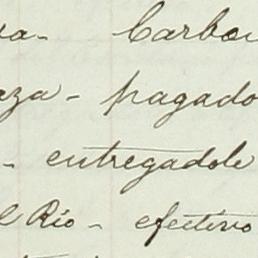 Carbon
aza - pagado
- entregadole
el Rio - efectivo